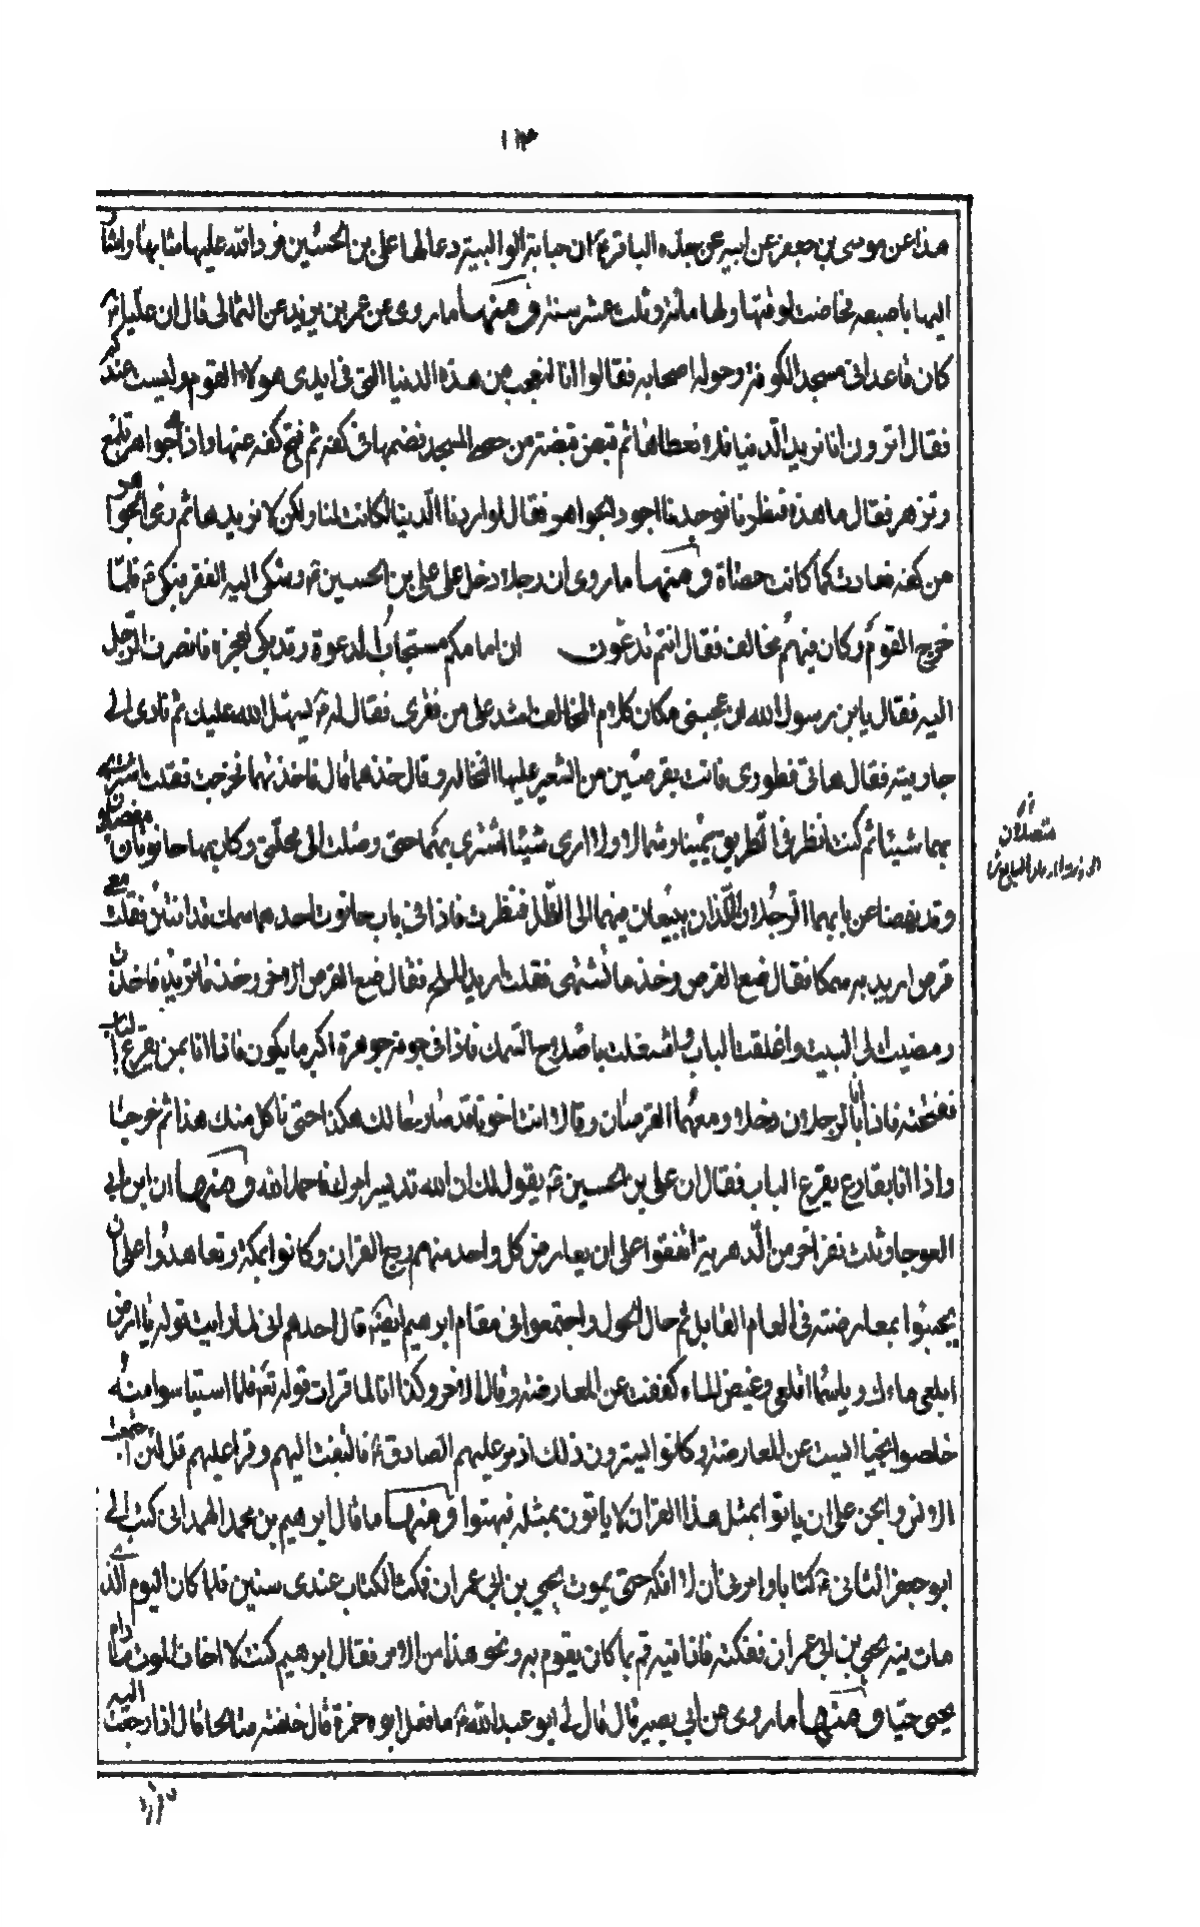 ١١٣
هذا عن موسى بن جعفر عن ابيه عن جده الباقر ع ان حبابة الوالبية دعا لها على بن الحسين فرد الله عليها شبابها واشار
اليها باصبعه فحاضت لوقتها ولها مائة وثلث عشر سنة ومنها ما روى عن عمر بن يزيد عن الثمالى قال ان عليا ع
كان قاعدا فى مسجد الكوفة وحوله اصحابه فقالوا انا لنعجب من هذه الدنيا التى فى ايدى هولاء القوم وليست عندكم
فقال اترون انا نريد الدنيا فلا نعطاها ثم قبض قبضة من حصا المسجد فضمها فى كفه ثم فتح كفه عنها واذا جواهر تلمع
وتزهر فقال ما هذه فنظرنا فوجدنا اجود الجواهر فقال لو اردنا الدنيا لكانت لنا ولكن لا نريدها ثم رمى الجواهر
من كفه فعادت كما كانت حصاة ومنها ما روى ان رجلا دخل على على بن الحسين ع وشكى اليه الفقر فبكى ع فلما
خرج القوم وكان فيهم مخالف فقال انتم تدعون ان امامكم مستجاب الدعوة وقد بكى لعجزه فانصرف الرجل
اليه فقال يابن رسول الله لى عجبنى مكان كلام المخالف اشد على من فقرى فقال له ع يسهل الله عليك ثم نادى الى
جاريته فقال هاتى فطورى فاتت بقرصين من الشعير عليها النخالة وقال خذهما قال فاخذتهما فخرجت فقلت اشترى
بهما شيئا ثم كنت انظر فى الطريق يمينا وشمالا ولا ارى شيئا اشترى بهما حتى وصلت الى محلتى وكان بها حانوتان منفصلان
وقد نهضنا عن بابهما الرجلان اللذان يبيعان منهما الى الظل فنظرت فاذا فى باب حانوت احدهما سمك قد انتن فقلت معى
قرص اريد به سمكا فقال ضع القرص وخذ ما تشتهى فقلت اريد الملح فقال ضع القرص الاخر وخذ ما تريده فاخذت
ومضيت الى البيت واغلقت الباب واشتغلت باصلاح السمك فاذا فى جوفه جوهرة اكبر ما يكون فاذا انا بمن يقرع الباب
ففتحته فاذا انا بالرجلان دخلا ومعهما القرصان وقالا انت اخونا قد ضاق حالك هكذا حتى تاكل منك هذا ثم خرجا
واذا انا بقارع يقرع الباب فقال ان على بن الحسين ع يقول لك ان الله قد يسر امرك فاحمد الله ومنها ان ابن ابى
العوجا وثلث نفر اخر من الدهرية اتفقوا على ان يعارض كل واحد منهم ربع القران وكانوا بمكة وتعاهدوا على ان
يجيئوا بمعارضته فى العام القابل ثم حال الحول واجتمعوا فى مقام ابرهيم ايضا قال احدهم انى لما رايت قوله يا ارض
ابلعى ماءك ويا سماء اقلعى وغيض الماء كففت عن المعارضة وقال الاخر وكذا انا لما قرات قوله تع فلما استياسوا منه
خلصوا نجيا ايست عن المعارضة وكانوا يسترون ذلك اذ مر عليهم الصادق ع فالتفت اليهم وقرا عليهم قل لئن اجتمعت
الانس والجن على ان ياتوا بمثل هذا القران لا ياتون بمثله فبهتوا ومنها ما قال ابرهيم بن محمد الهمدانى كتب الى
ابو جعفر الثانى ع كتابا وامرنى ان لا افكه حتى يموت يحيى بن ابى عمران فمكث الكتاب عندى سنين فلما كان اليوم الذى
مات فيه يحيى بن ابى عمران ففككته فاذا فيه قم بما كان يقوم به ونحو هذا من الامر فقال ابرهيم كنت لا اخاف الموت ما دام
يحيى حيا ومنها ما روى عن ابى بصير قال قال لى ابو عبد الله ع ما فعل ابو حمزة قال خلفته صالحا قال اذا رجعت اليه
متصلان